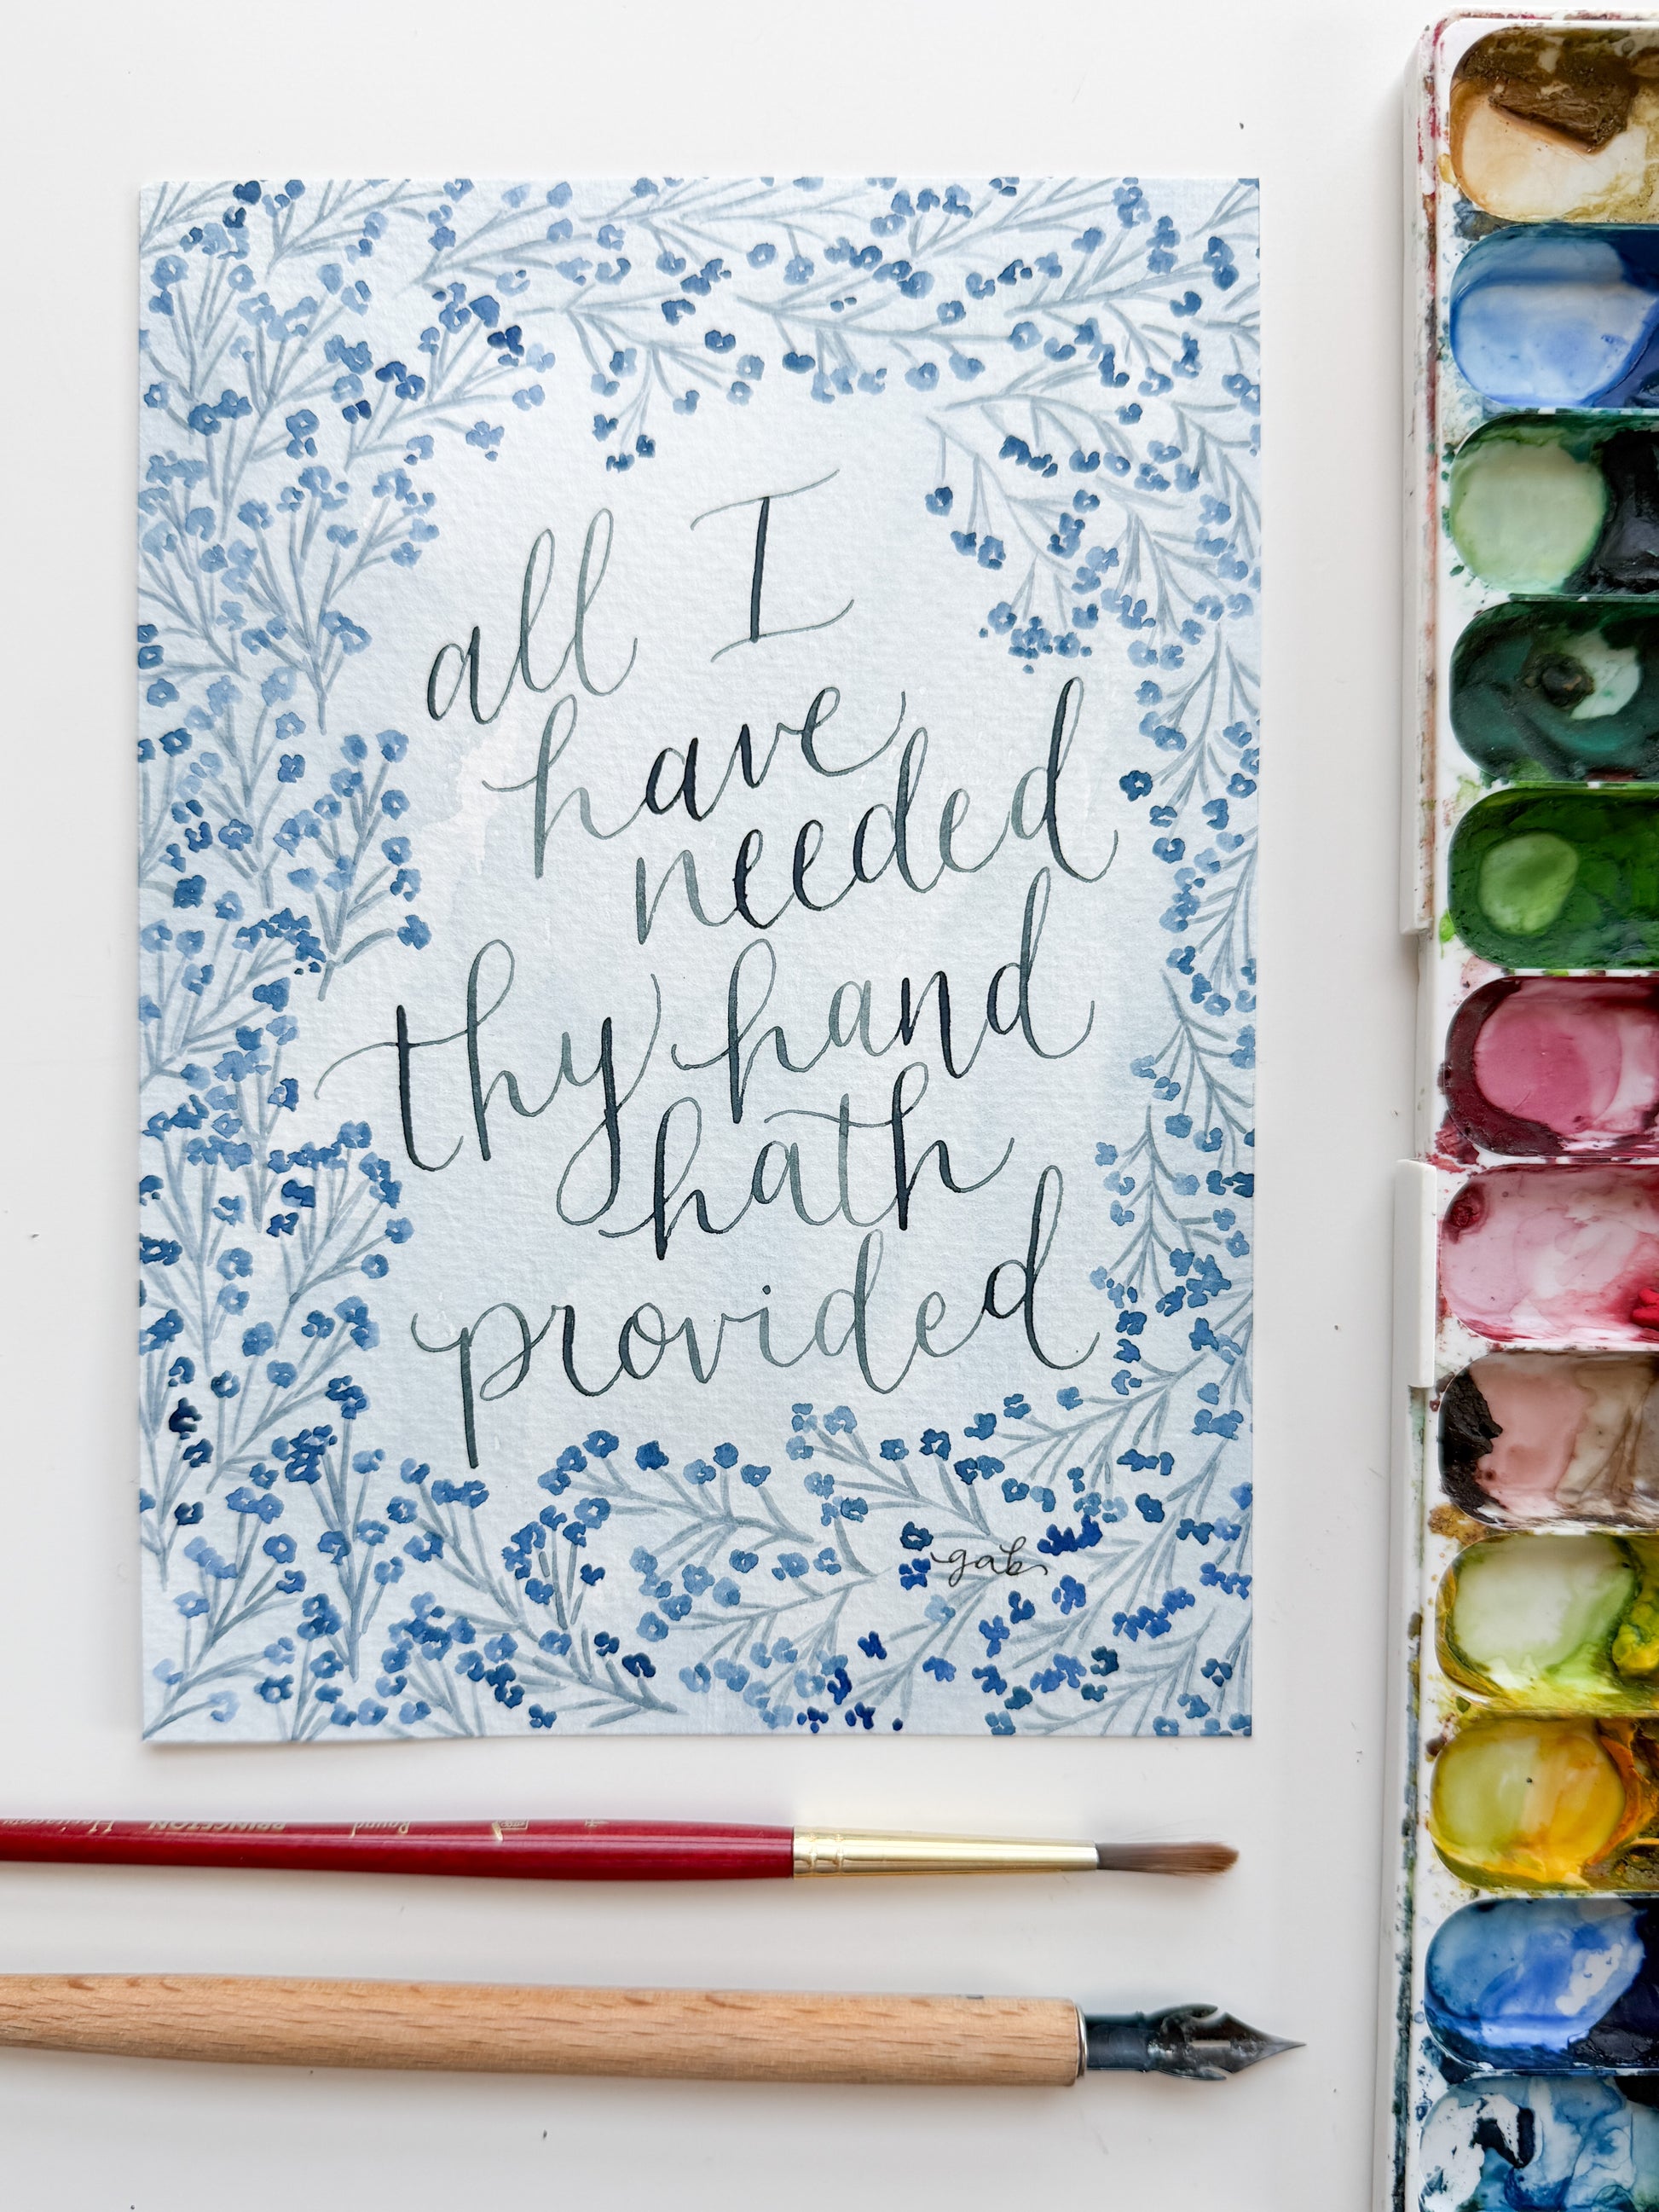 all I
have
needed
thy hand
hath
provided
gab
PRINCETON
Round